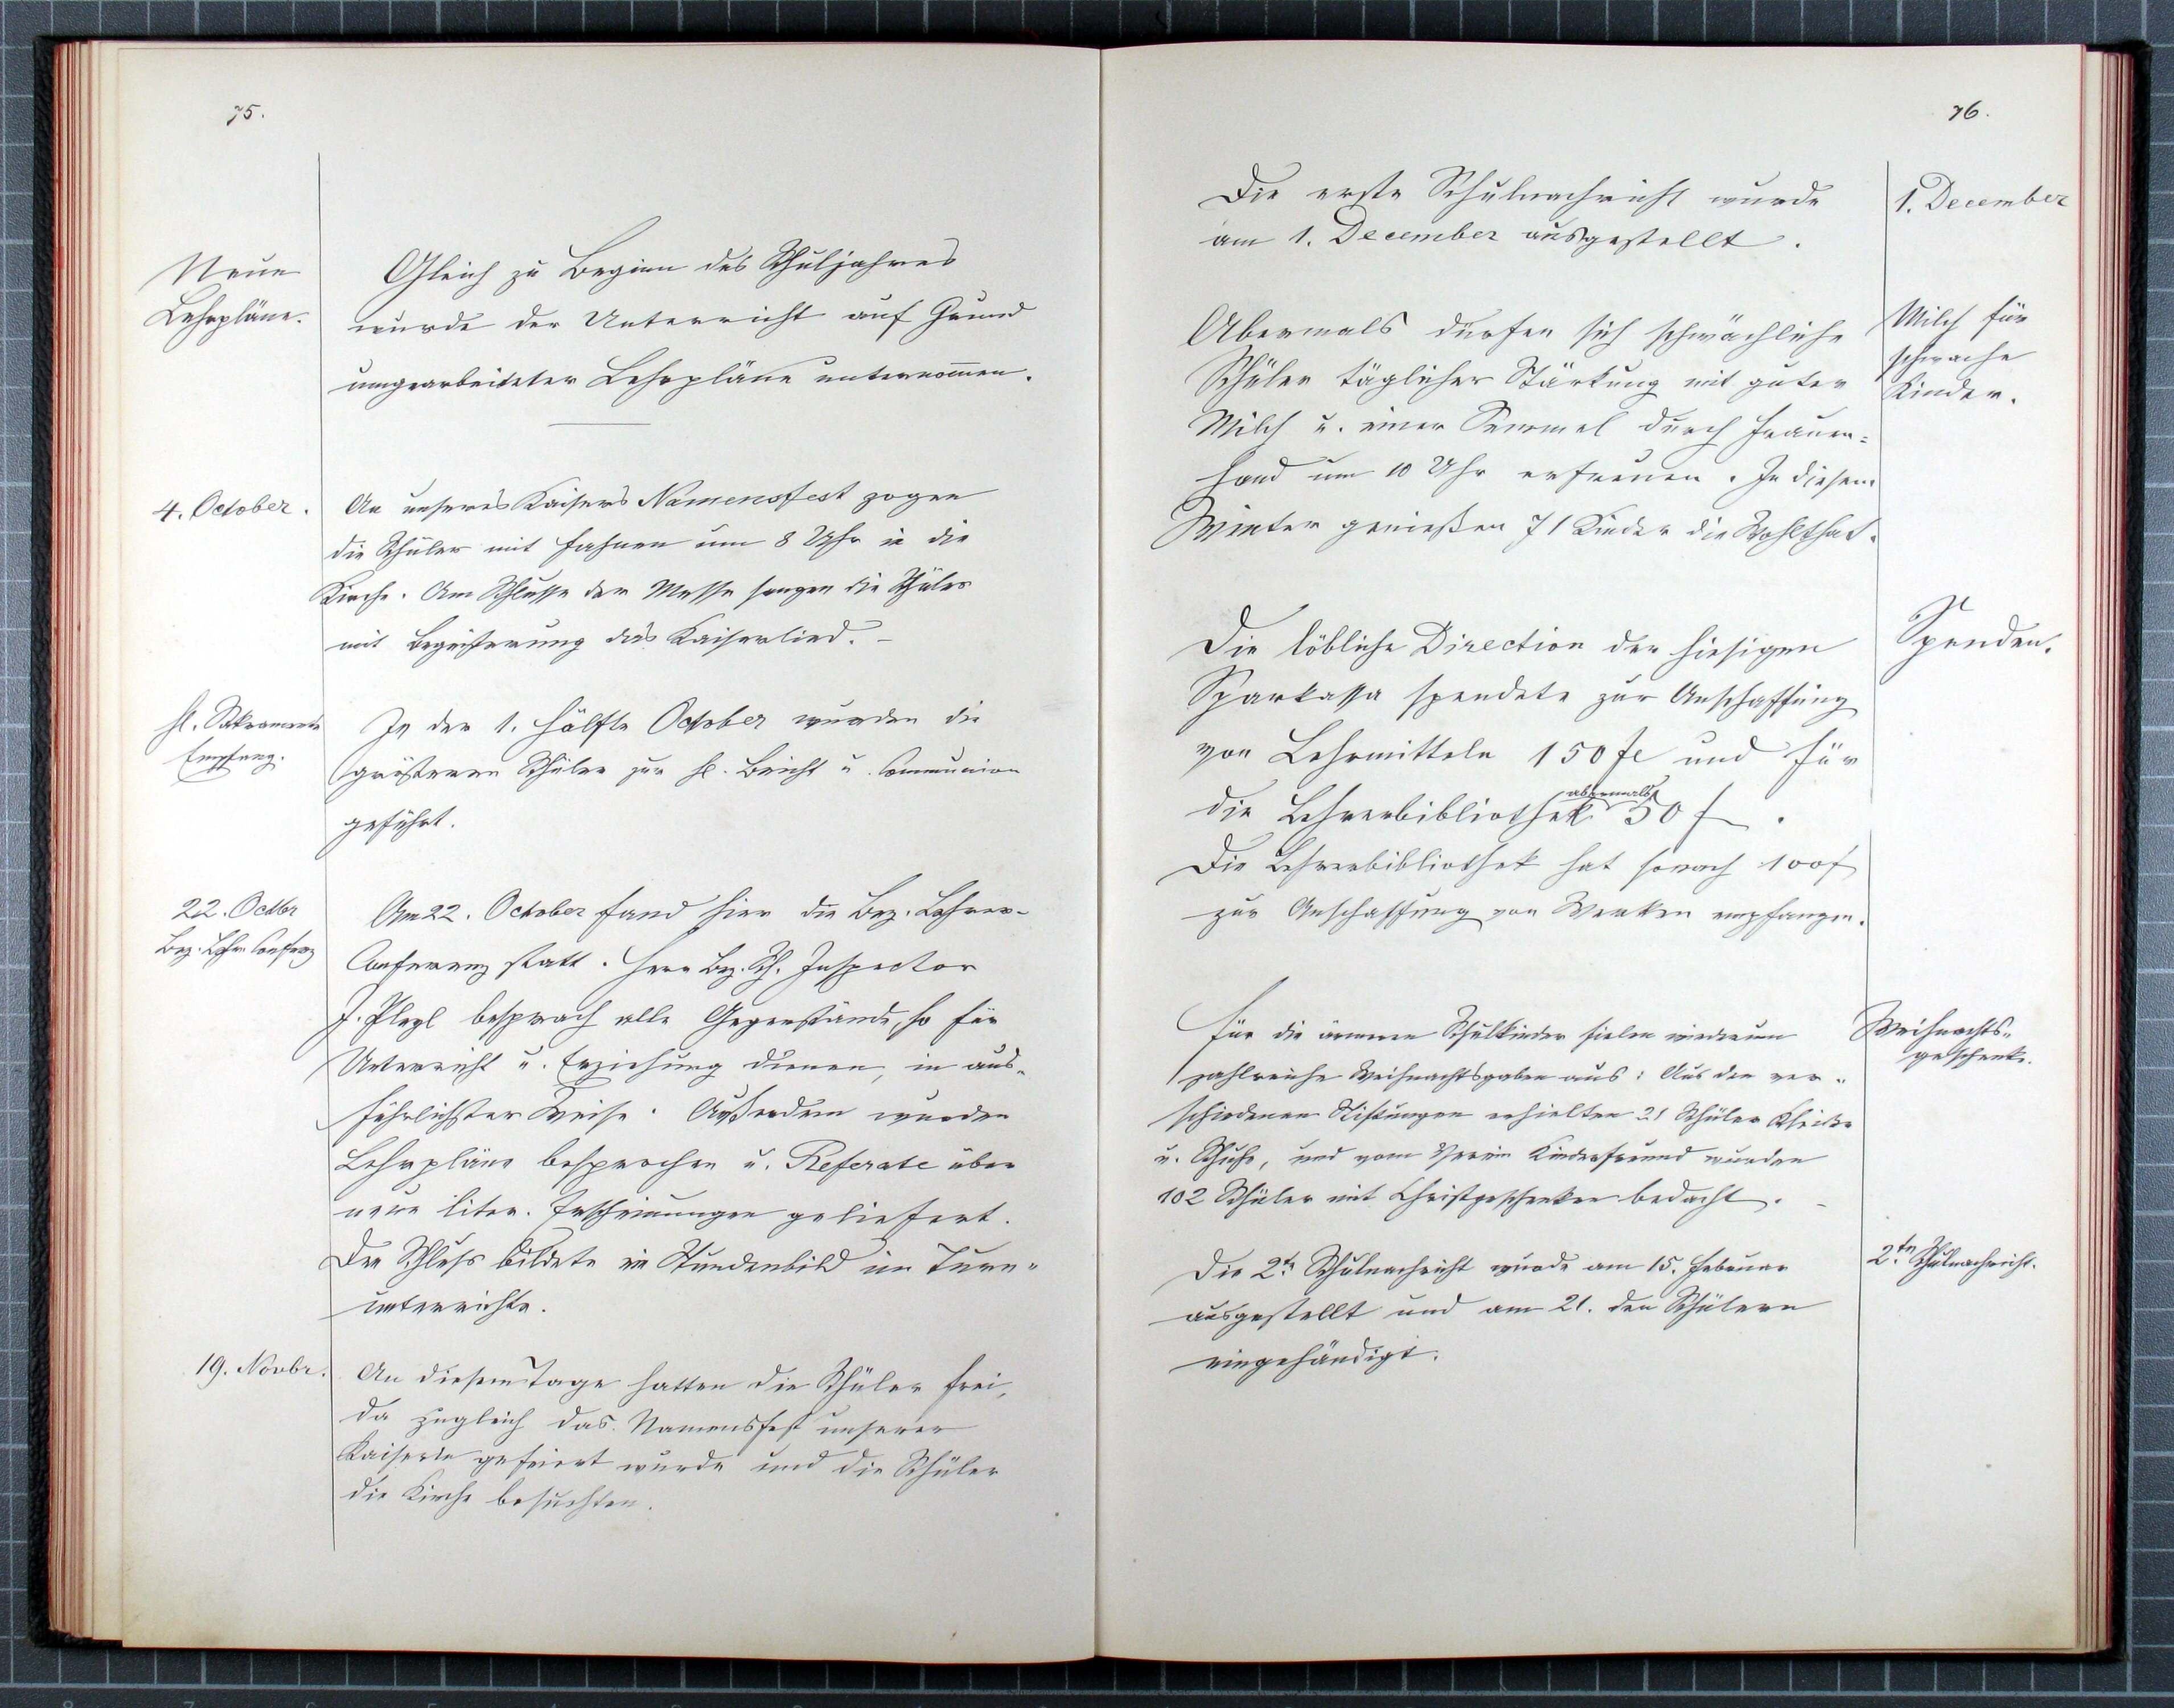 75.
Neue
Lehrpläne.
Gleich zu Beginn des Schuljahres
wurde der Unterricht auf Grund
umgearbeiteter Lehrpläne unternommen.
4. October.
An unseres Kaisers Namensfest zogen
die Schüler mit Fahnen um 8 Uhr in die
Kirche. Am Schlusse der Messe sangen die Schüler
mit Begeisterung das Kaiserlied. –
hl. Sakramente
Empfang.
In der 1. Hälfte October wurden die
größeren Schüler zur hl. Beicht u. Communion
geführt.
22. Octbr
Bez. Lehr. Conferenz
Am 22. October fand hier die Bez. Lehrer-
Conferenz statt. Herr Bez. Sch. Inspector
J. Pleyl besprach alle Gegenstände, so für
Unterricht u. Erziehung dienen, in aus-
führlichster Weise. Außerdem wurden
Lehrpläne besprochen u. Referate über
neue liter. Erscheinungen geliefert.
Den Schluss bildete ein Stundenbild im Turn-
unterrichte.
19. Novbr.
An diesem Tage hatten die Schüler frei,
da zugleich das Namensfest unserer
Kaiserin gefeiert wurde und die Schüler
die Kirche besuchten.
76.
Die erste Schulnachricht wurde
am 1. December ausgestellt.
1. December
Abermals dürfen sich schwächliche
Schüler täglicher Stärkung mit guter
Milch u. einer Semmel durch Frauen-
hand um 10 Uhr erfreuen. In diesem
Winter genießen 71 Kinder die Wohlthat.
Milch für
schwache
Kinder.
Die löbliche Direction der hiesigen
Sparkassa spendete zur Anschaffung
von Lehrmitteln 150 fl und für
die Lehrerbibliothek abermals 50 f.
Die Lehrerbibliothek hat sonach 100 f
zur Anschaffung von Werken empfangen.
Spenden.
Für die ärmeren Schulkinder fielen wiederum
zahlreiche Weihnachtsgaben aus: Aus den ver-
schiedenen Stiftungen erhielten 21 Schüler Kleider
u. Schuhe, und vom Verein Kinderfreund wurden
102 Schüler mit Christgeschenken bedacht. –
Weihnachts-
geschenke.
Die 2te Schulnachricht wurde am 15. Februar
ausgestellt und am 21. den Schülern
eingehändigt.
2te Schulnachricht.